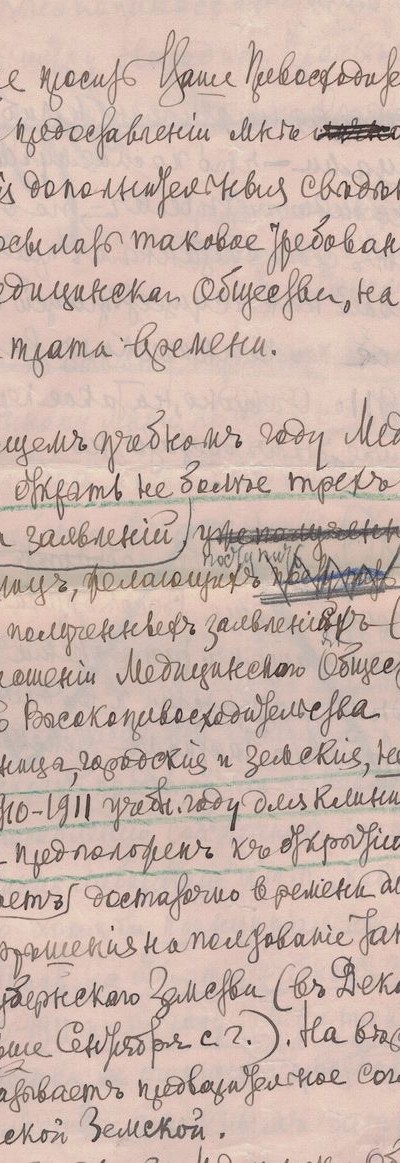 е просить Ваше Превосходите
предоставленіи мнѣ
дополнительныя свѣдѣн
осылать таковое требован
едицинскаго Общества, на
трата времени.
щемъ учебномъ году Мед
открыть не болѣе трехъ
заявленій уже полученн
поступить
ницъ, желающихъ
полученныхъ заявленіяхъ (
ношеніи Медицинскаго Общес
Высокопревосходительства
ница, городскія и земскія, не
910-1911 учебн. году для клини
предположенъ къ открытію
аетъ достаточно времени
рѣшенія на пользованіе
убернскаго Земства (въ Дека
Сентября с. г.). На въ
азываетъ предварительное сог
ской Земской.